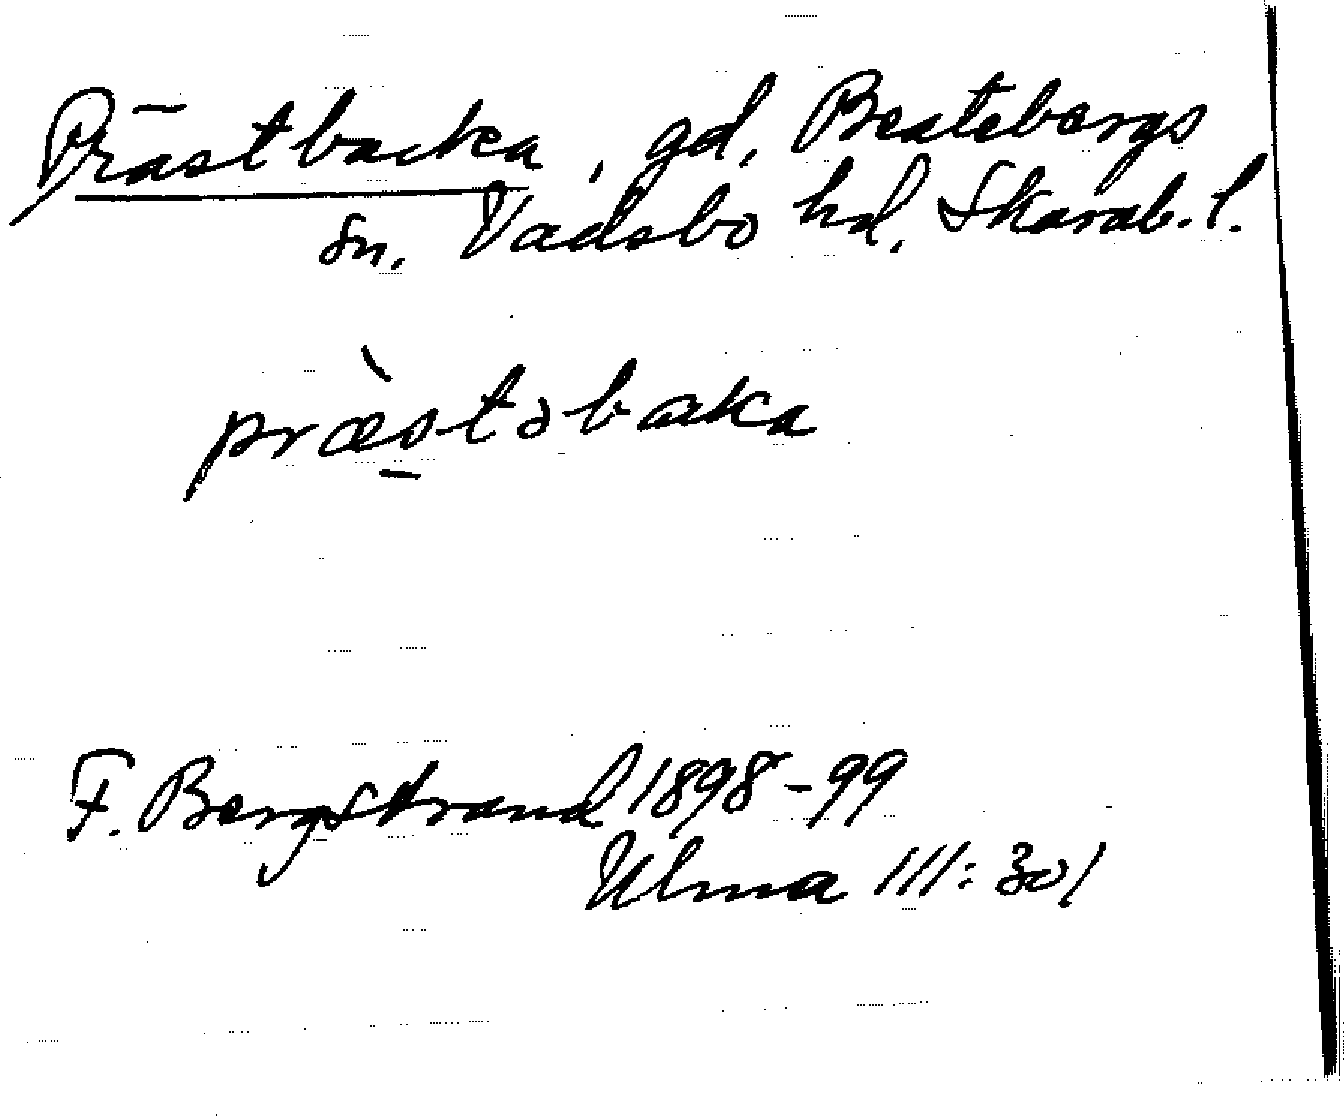 Prästbacka, gd, Beatebergs
sn. Vadsbo hd, Skarab. l.
præ̀s̱təbaka
F. Bergstrand 1898-99
Ulma 111:301